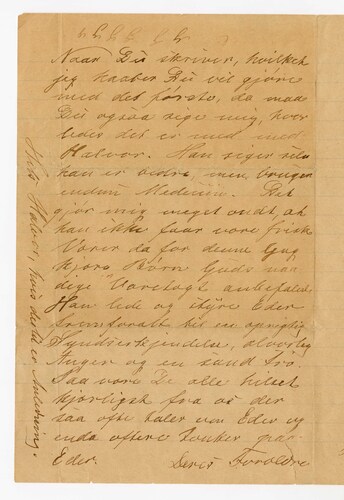 Naar Du skriver, hvilket
jeg haaber Du vil gjøre
med det første, da maa
Du ogsaa sige mig, hvor
ledes det er med med
Halvor. Han siger selv
han er bedre, men bruger
endnu Medicin. Det
gjør mig meget ondt, at
han ikke faar være frisk
Værer da for denne Gang
kjære Børn Guds naa
dige Varetægt anbefalede.
Han lede og styre Eder
fremforalt til en oprigtig
Syndserkjendelse, alvorlig
Anger og en sand Tro.
Saa være De alle hilset
kjærligst fra os der
saa ofte taler om Eder og
enda oftere tænker paa
Eder. Deres Forældre
Hils Halvor, hvis der er Anledning.